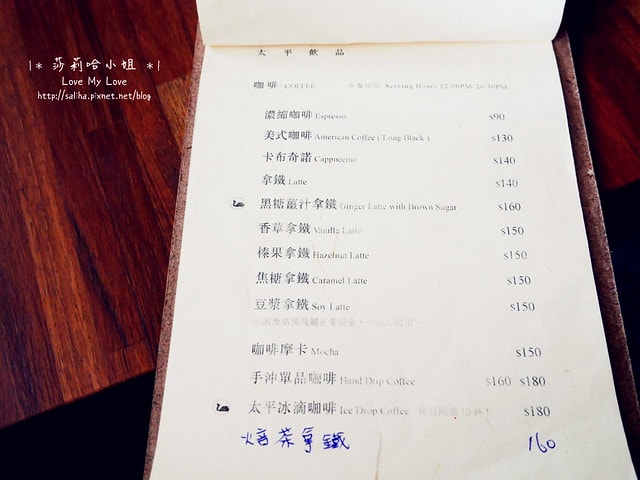 |* 莎莉哈小姐 *|
Love My Love
http://saliha.pixnet.net/blog
太平飲品
咖啡 COFFEE Serving Hours 12:00PM-20:30PM
濃縮咖啡 Espresso $90
美式咖啡 American Coffee ( Long Black ) $130
卡布奇諾 Cappuccino $140
拿鐵 Latte $140
黑糖薑汁拿鐵 Ginger Latte with Brown Sugar $160
香草拿鐵 Vanilla Latte $150
榛果拿鐵 Hazelnut Latte $150
焦糖拿鐵 Caramel Latte $150
豆漿拿鐵 Soy Latte $150
咖啡摩卡 Mocha $150
手沖單品咖啡 Hand Drip Coffee $160 $180
太平冰滴咖啡 Ice Drop Coffee $180
焙茶拿鐵 160